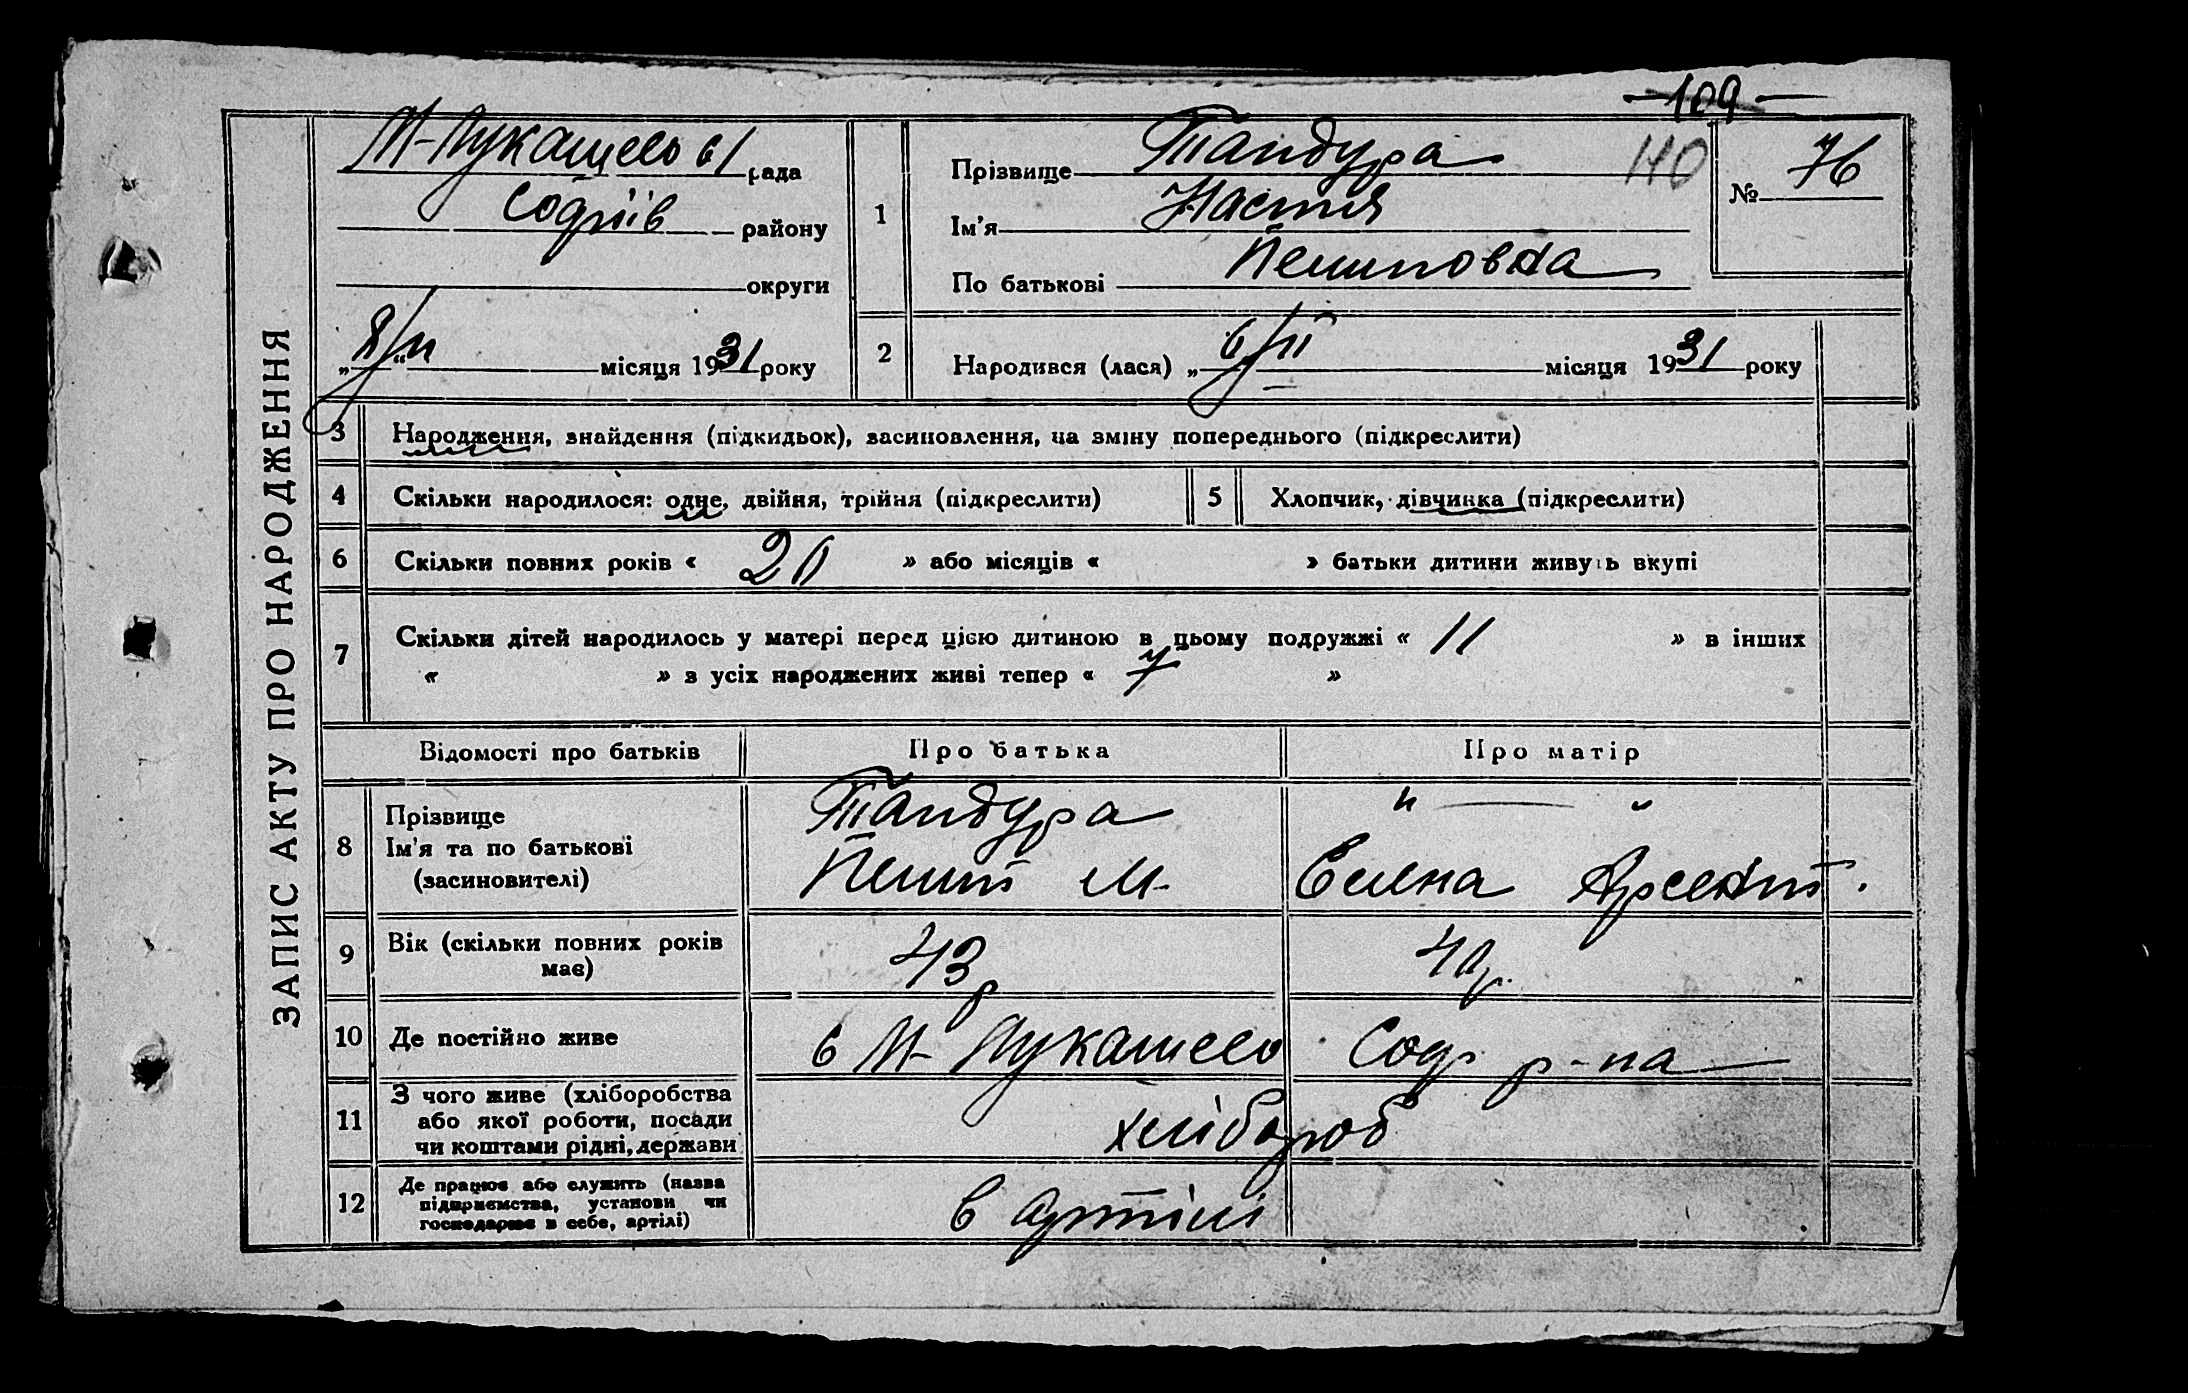 —109—
110
ЗАПИС АКТУ ПРО НАРОДЖЕННЯ
М-Лукашево с/рада
Софіїв району
округи
„8/ІІ“ місяця 1931 року
1
Прізвище Тандура
Ім'я Настя
По батькові Пилиповна
№ 76
2
Народився (лася) „6/ІІ місяця 1931 року
3 Народження, знайдення (підкидьок), засиновлення, на зміну попереднього (підкреслити)
4 Скільки народилося: одне, двійня, трійня (підкреслити)
5 Хлопчик, дівчинка (підкреслити)
6 Скільки повних років « 20 » або місяців « » батьки дитини живуть вкупі
7 Скільки дітей народилось у матері перед цією дитиною в цьому подружжі « 11 » в інших
« » з усіх народжених живі тепер « 7 »
Відомості про батьків Про батька Про матір
8 Прізвище
Ім'я та по батькові
(засиновителі)
Тандура " — "
Пилип М. Елена Арсент.
9 Вік (скільки повних років
має)
43 р 40 р.
10 Де постійно живе
с М- Лукашево Соф р-на
11 З чого живе (хліборобства
або якої роботи, посади
чи коштами рідні, держави
хлібороб
12 Де працює або служить (назва
підприємства, установи чи
господарює в себе, артілі)
в артілі